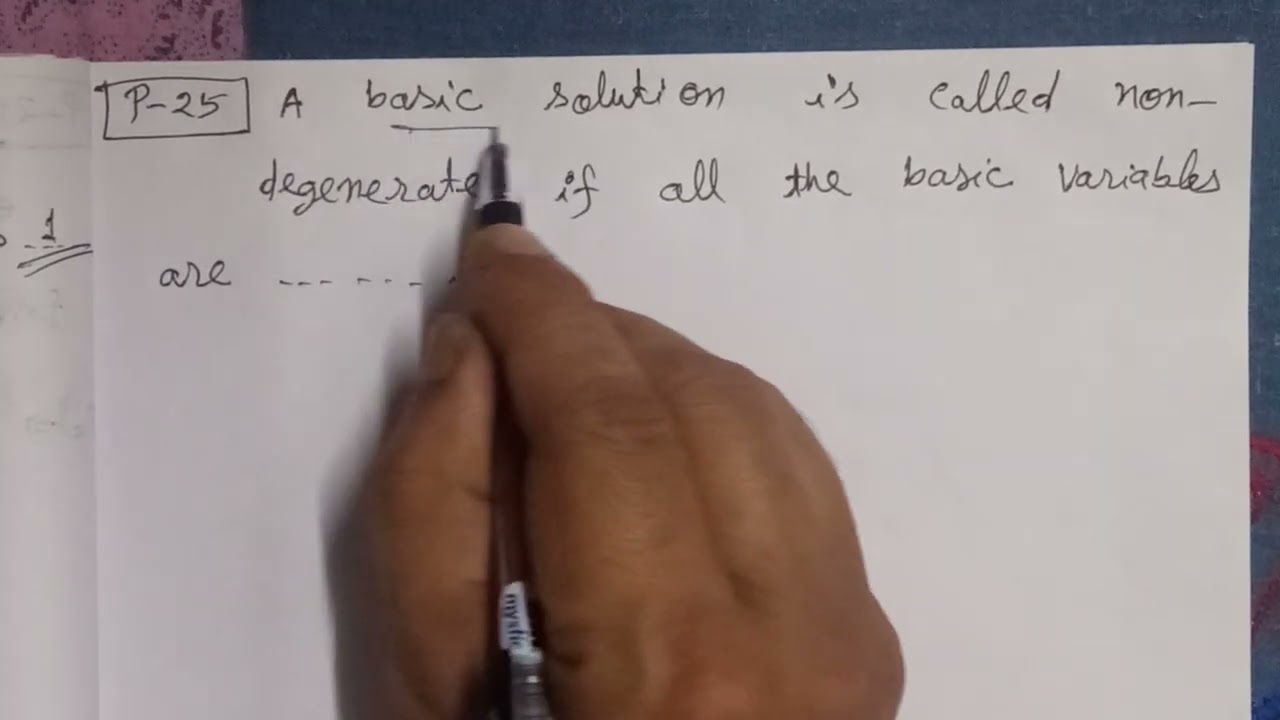 P-25 A basic solution is called non-
degenerate if all the basic variables
are --- ----
1